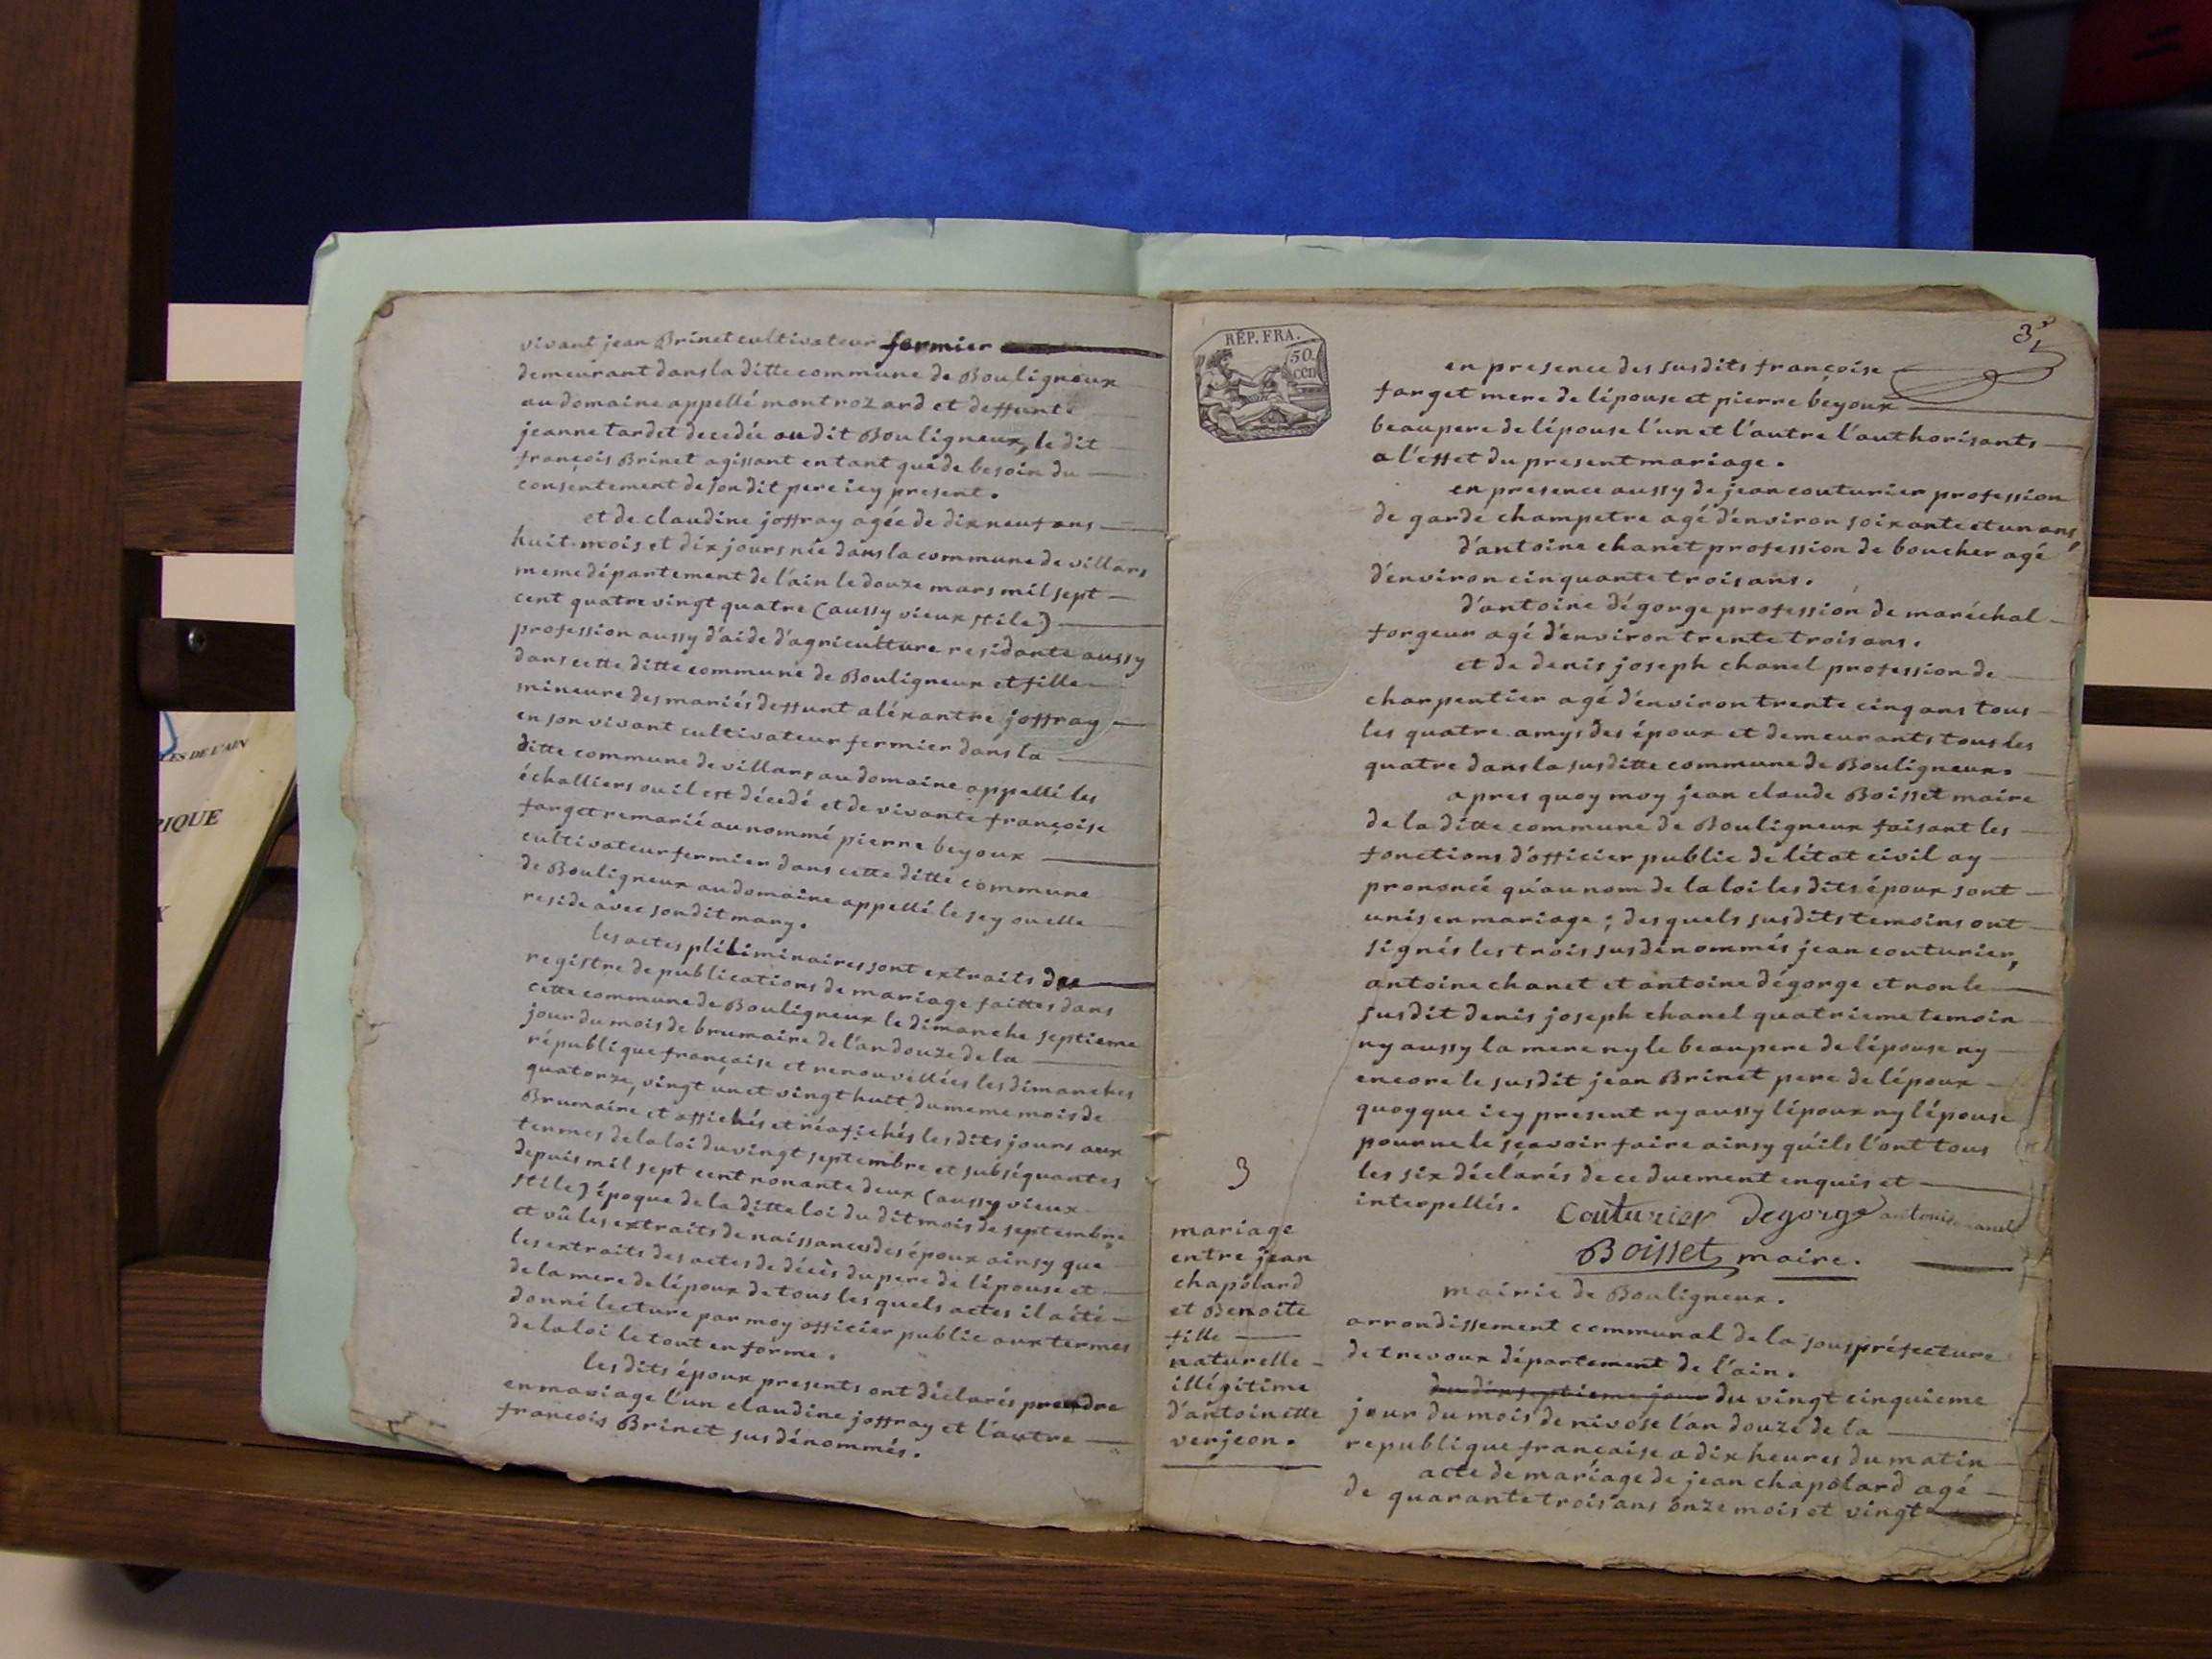 vivant jean Brinet cultivateur fermier
demeurant dans la ditte commune de Bouligneux
au domaine appellé montrozard et deffunte
jeanne tardet decedée audit Bouligneux, le dit
françois Brinet agissant en tant que de besoin du
consentement de son dit pere icy present.
et de claudine joffray agée de dix neuf ans
huit mois et dix jours née dans la commune de villars
meme département de l'ain le douze mars mil sept
cent quatre vingt quatre (aussy vieux stile)
profession aussy d'aide d'agriculture residante aussy
dans cette ditte commune de Bouligneux et fille
mineure des mariés deffunt aléxantre joffray
en son vivant cultivateur fermier dans la
ditte commune de villars au domaine appellé les
échalliers ou il est décedé et de vivante françoise
farget remarié au nommé pierre beyoux
cultivateur fermier dans cette ditte commune
de Bouligneux au domaine appellé le sey ou elle
reside avec son dit mary.
les actes pléliminaires sont extraits du
registre de publications de mariage faittes dans
cette commune de Bouligneux le dimanche septieme
jour du mois de brumaire de l'an douze de la
république française et renouvellées les dimanches
quatorze, vingt un et vingt huit du meme mois de
Brumaire et affichés et réafichés les dits jours aux
termes de la loi du vingt septembre et subséquantes
depuis mil sept cent nonante deux (aussy vieux
stile) époque de la ditte loi du dit mois de septembre
et vû les extraits de naissances des époux ainsy que
les extraits des actes de décès du pere de l'épouse et
de la mere de l'époux de tous les quels actes il a été
donné lecture par moy officier public aux termes
de la loi le tout en forme.
les dits époux presents ont déclarés prendre
en mariage l'un claudine joffray et l'autre
françois Brinet sus dénommés.
RÉP. FRA.
50
cen
3
en presence des susdits françoise
farget mere de l'épouse et pierre beyoux
beaupere de l'épouse l'un et l'autre l'authorisants
a l'effet du present mariage.
en presence aussy de jean couturier profession
de garde champetre agé d'environ soixante et un ans,
d'antoine chanet profession de boucher agé
d'environ cinquante trois ans.
d'antoine dégorge profession de maréchal
forgeur agé d'environ trente trois ans.
et de denis joseph chanel profession de
charpentier agé d'environ trente cinq ans tous
les quatre amys des époux et demeurants tous les
quatre dans la susditte commune de Bouligneux.
apres quoy moy jean claude Boisset maire
de la ditte commune de Bouligneux faisant les
fonctions d'officier public de l'état civil ay
prononcé qu'au nom de la loi les dits époux sont
unis en mariage ; des quels susdits temoins ont
signés les trois susdénommés jean couturier,
antoine chanet et antoine dégorge et non le
susdit denis joseph chanel quatrieme temoin
ny aussy la mere ny le beaupere de l'épouse ny
encore le susdit jean Brinet pere de l'époux
quoyque icy present ny aussy l'époux ny l'épouse
pour ne le sçavoir faire ainsy qu'ils l'ont tous
les six déclarés de ce duement enquis et
interpellés. Couturier Degorge
Boisset maire.
3
mariage
entre jean
chapolard
et Benoite
fille
naturelle
illégitime
d'antoinette
verjeon.
mairie de Bouligneux.
arrondissement communal de la souspréfecture
de trevoux département de l'ain.
du dix septieme jour du vingt cinquieme
jour du mois de nivose l'an douze de la
republique française a dix heures du matin
acte de mariage de jean chapolard agé
de quarante trois ans onze mois et vingt